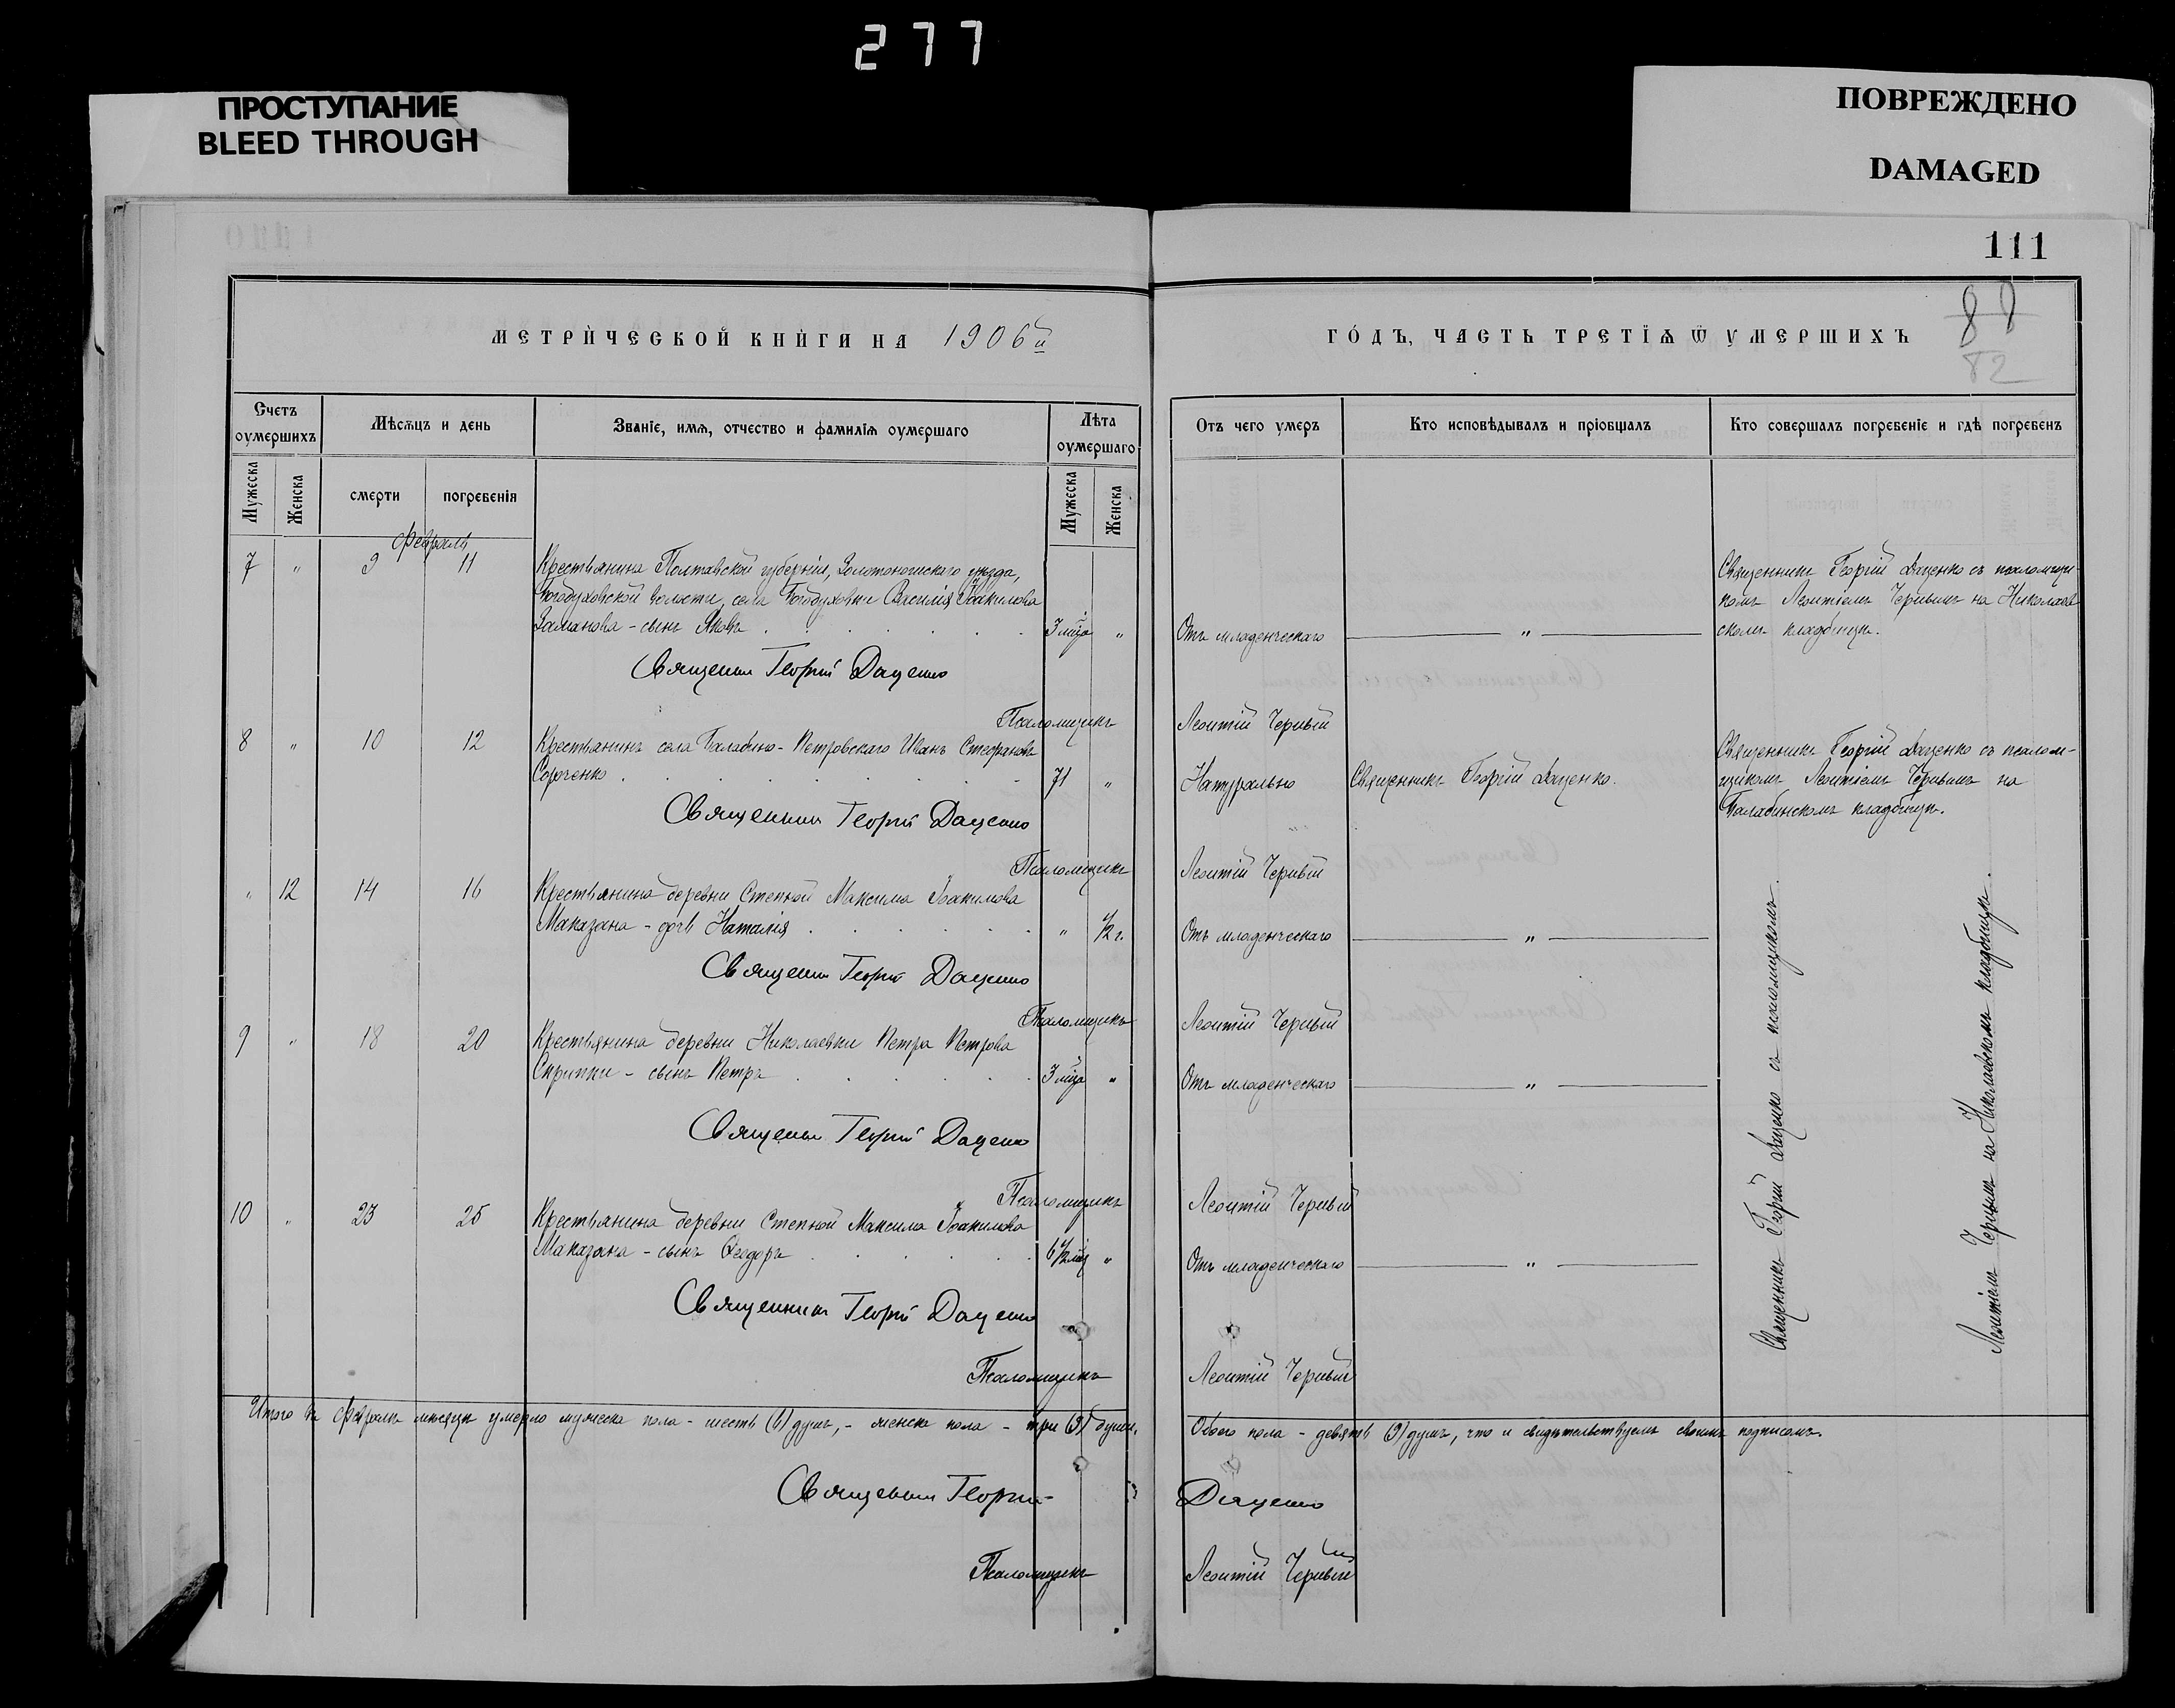 277
ПРОСТУПАНИЕ
BLEED THROUGH
ПОВРЕЖДЕНО
DAMAGED
111
МЕТРИЧЕСКОЙ КНИГИ НА 1906й
ГОДЪ, ЧАСТЬ ТРЕТІЯ Ѿ УМЕРШИХЪ
88
82
Счетъ оумершихъ
Мѣсяцъ и день
Званіе, имя, отчество и фамилія оумершаго
Лѣта оумершаго
Отъ чего умеръ
Кто исповѣдывалъ и пріобщалъ
Кто совершалъ погребеніе и гдѣ погребенъ
Мужеска
Женска
смерти
погребенія
Мужеска
Женска
Февраль
7 " 9 11 Крестьянина Полтавской губерніи, Золотоношскаго уѣзда,
Богодуховской волости, села Богодуховки Василія Іоакимова
сынъ Яковъ 3 мца " Отъ младенческаго "
Священникъ Георгій Даценко съ псаломщи-
комъ Леонтіемъ Червымъ на Николаев
скомъ кладбищѣ.
Священникъ Георгій Даценко
Псаломщикъ Леонтій Червый
8 " 10 12 Крестьянинъ села Балабино-Петровскаго Иванъ Стефановъ
71 " Натурально Священникъ Георгій Даценко.
Священникъ Георгій Даценко съ псалом-
щикомъ Леонтіемъ Червымъ на
Балабинскомъ кладбищѣ.
Священникъ Георгій Даценко
Псаломщикъ Леонтій Червый
" 12 14 16 Крестьянина деревни Степной Максима Іоакимова
Маказана - дочь Наталія " 1/2 г. Отъ младенческаго "
Священникъ Георгій Даценко
Псаломщикъ Леонтій Червый
9 " 18 20 Крестьянина деревни Николаевки Петра Петрова
Скрипки - сынъ Петръ 3 мца " Отъ младенческаго "
Священникъ Георгій Даценко
Псаломщикъ Леонтій Червый
10 " 23 25 Крестьянина деревни Степной Максима Іоакимова
Маказана - сынъ Ѳеодоръ 6 1/2 мц " Отъ младенческаго "
Священникъ Георгій Даценко
Псаломщикъ Леонтій Червый
Священникъ Георгій Даценко съ псаломщикомъ
Леонтіемъ Червымъ на Николаевскомъ кладбищѣ.
Итого въ Февралѣ мѣсяцѣ умерло мужеска пола - шесть (6) душъ, - женска пола - три (3) души.
Обоего пола - девять (9) душъ, что и свидѣтельствуемъ своимъ подписомъ.
Священникъ Георгій Даценко
Псаломщикъ Леонтій Червый